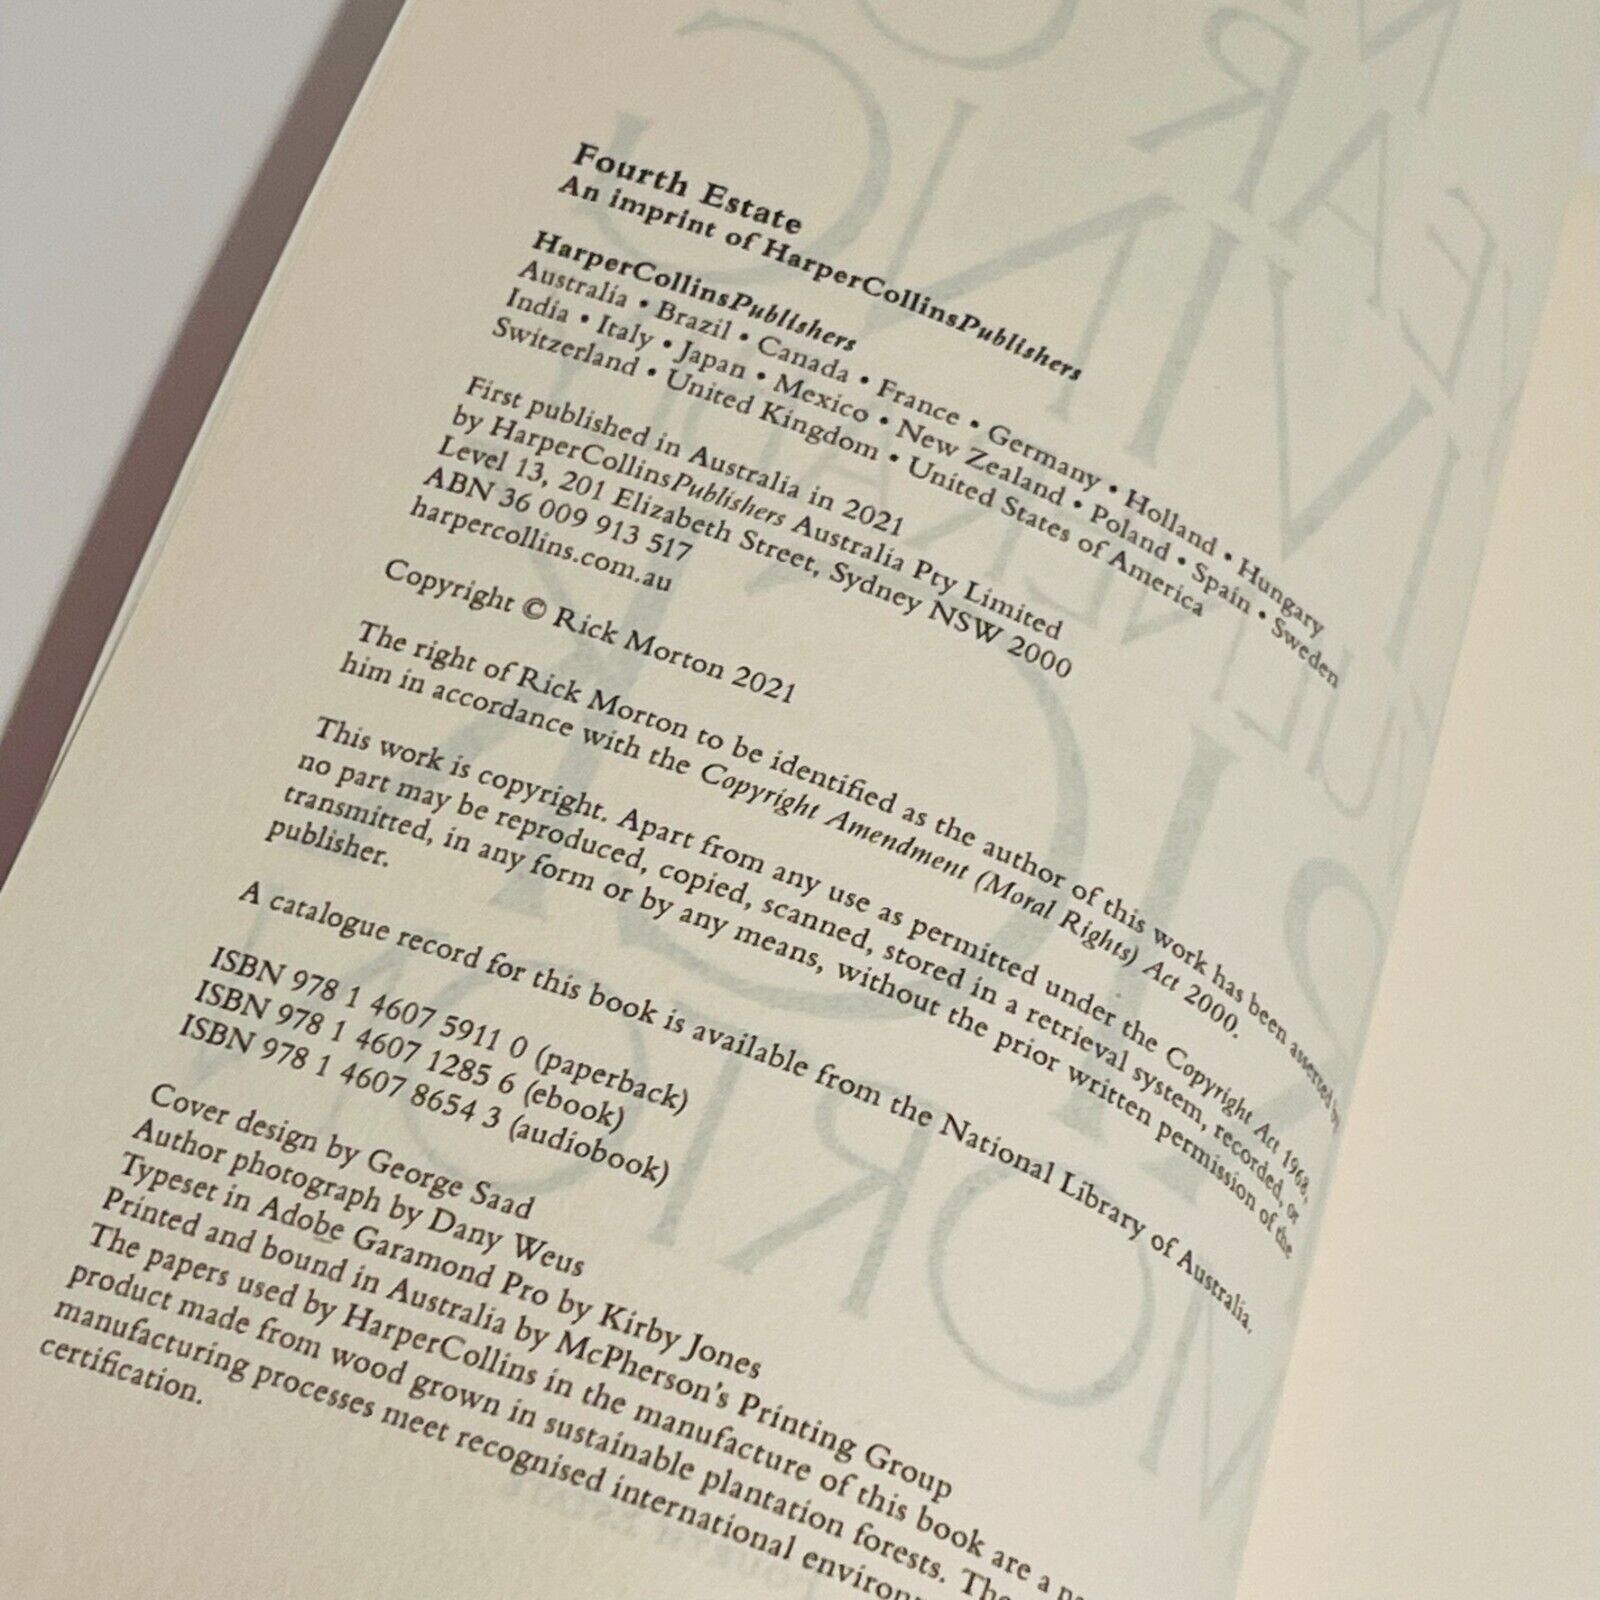 Fourth Estate
An imprint of HarperCollinsPublishers
HarperCollinsPublishers
Australia • Brazil • Canada • France • Germany • Holland • Hungary
India • Italy • Japan • Mexico • New Zealand • Poland • Spain • Sweden
Switzerland • United Kingdom • United States of America
First published in Australia in 2021
by HarperCollinsPublishers Australia Pty Limited
Level 13, 201 Elizabeth Street, Sydney NSW 2000
ABN 36 009 913 517
harpercollins.com.au
Copyright © Rick Morton 2021
The right of Rick Morton to be identified as the author of this work has been asserted by
him in accordance with the Copyright Amendment (Moral Rights) Act 2000.
This work is copyright. Apart from any use as permitted under the Copyright Act 1968,
no part may be reproduced, copied, scanned, stored in a retrieval system, recorded, or
transmitted, in any form or by any means, without the prior written permission of the
publisher.
A catalogue record for this book is available from the National Library of Australia.
ISBN 978 1 4607 5911 0 (paperback)
ISBN 978 1 4607 1285 6 (ebook)
ISBN 978 1 4607 8654 3 (audiobook)
Cover design by George Saad
Author photograph by Dany Weus
Typeset in Adobe Garamond Pro by Kirby Jones
Printed and bound in Australia by McPherson's Printing Group
The papers used by HarperCollins in the manufacture of this book are a
product made from wood grown in sustainable plantation forests.
manufacturing processes meet recognised international
certification.